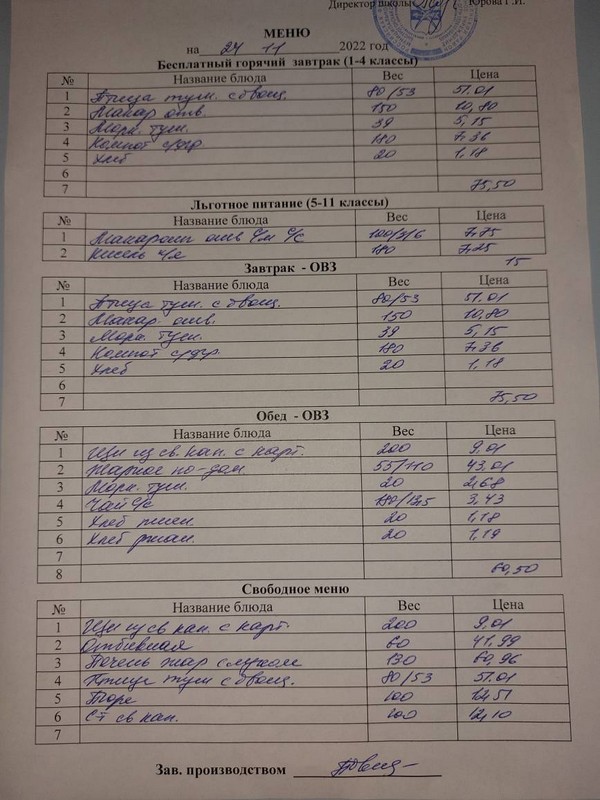 Директор школы Юрова Г.И.
МЕНЮ
на 24 11 2022 год
Бесплатный горячий завтрак (1-4 классы)
№ Название блюда Вес Цена
1 Птица туш. с овощ. 80/53 51.01
2 Макар отв. 150 10,80
3 Морк. туш. 39 5,15
4 Компот с/фр 180 7.36
5 Хлеб 20 1,18
6
7 75,50
Льготное питание (5-11 классы)
№ Название блюда Вес Цена
1 Макароны отв с/м с/с 7,75
2 Кисель 180 7,25
15
Завтрак - ОВЗ
№ Название блюда Вес Цена
1 Птица туш. с овощ. 80/53 51.01
2 Макар. отв. 150 10,80
3 Морк. туш. 39 5,15
4 Компот с/фр. 180 7.36
5 Хлеб 20 1,18
6
7 75,50
Обед - ОВЗ
№ Название блюда Вес Цена
1 Щи из св. кап. с карт. 200 9.01
2 Жаркое по-дом. 55/110 43,01
3 Морк. туш. 20 2,68
4 Чай с/с 3,43
5 Хлеб пшен. 20 1,18
6 Хлеб ржан. 20 1,19
7
8 60,50
Свободное меню
№ Название блюда Вес Цена
1 Щи из св кап. с карт. 200 9.01
2 Отбивная 60 41,99
3 Печень жар с луком 130 60,96
4 Птица туш с овощ. 80/53 51.01
5 Пюре 100 12,51
6 С-т св кап. 100 12,10
7
Зав. производством